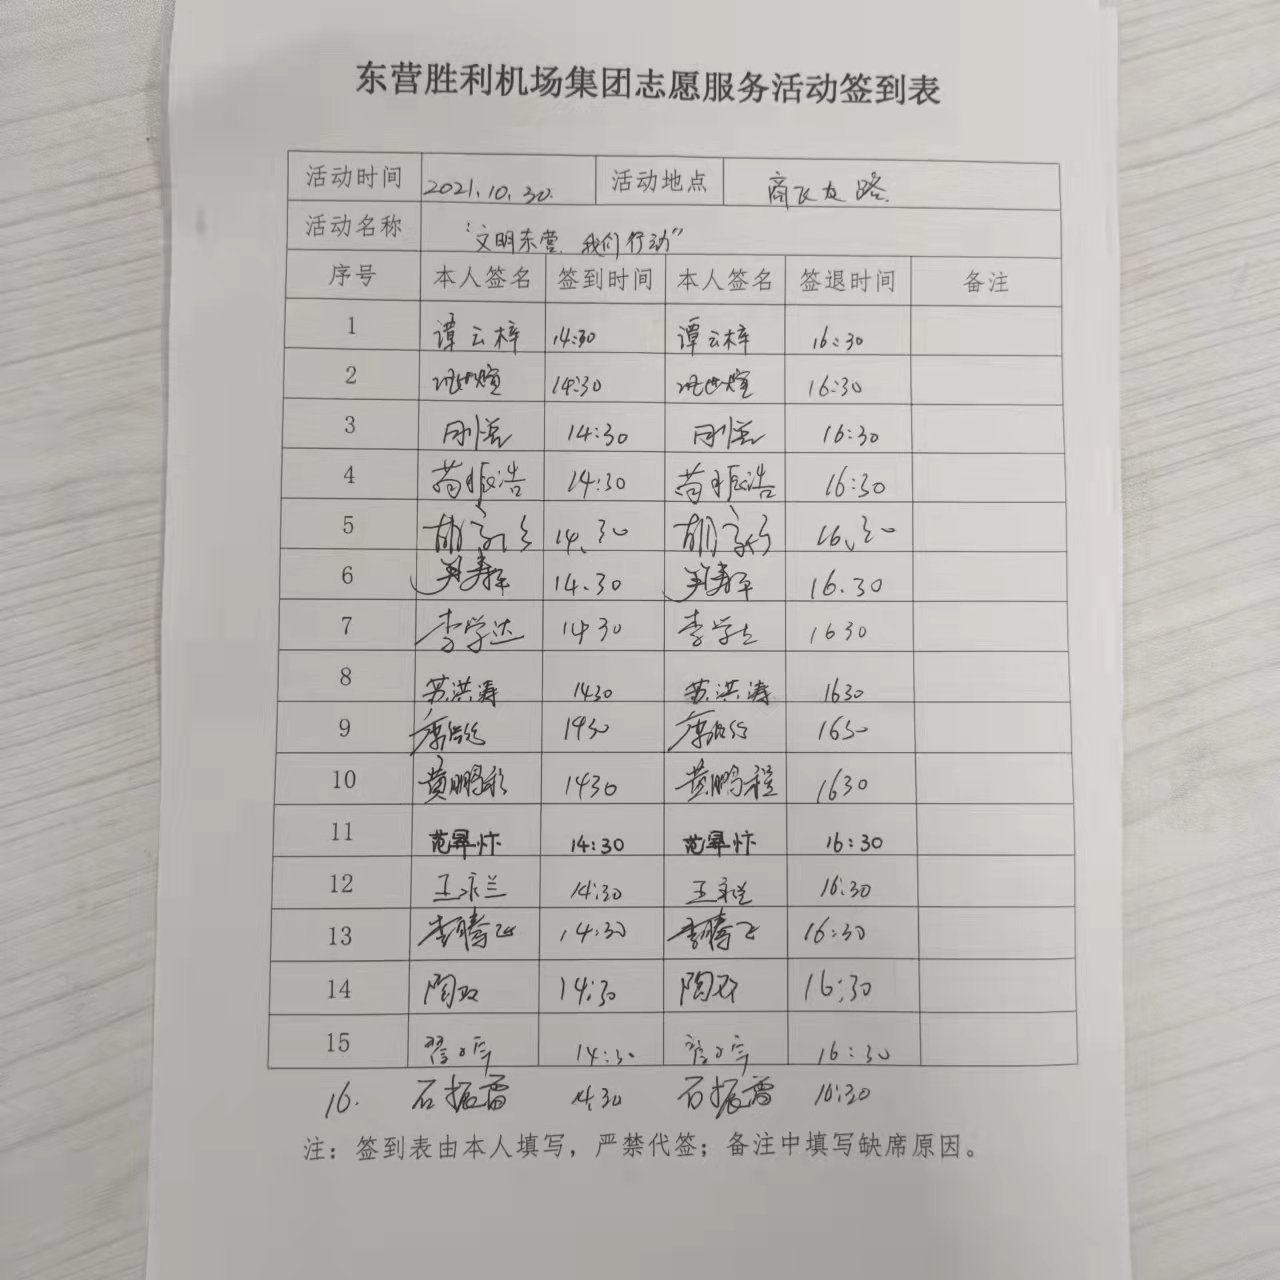 东营胜利机场集团志愿服务活动签到表
活动时间 2021.10.30. 活动地点 商飞友路
活动名称 “文明东营、我们行动”
序号 本人签名 签到时间 本人签名 签退时间 备注
1 谭云梓 14:30 谭云梓 16:30
2 14:30 16:30
3 14:30 16:30
4 苟振浩 14:30 苟振浩 16:30
5 14.30 16.30
6 14.30 16.30
7 李学达 1430 李学达 1630
8 苏洪涛 1430 苏洪涛 1630
9 1430 1630
10 黄鹏程 1430 黄鹏程 1630
11 14:30 16:30
12 王永兰 14:30 王永兰 16:30
13 李腾飞 14:30 李腾飞 16:30
14 14:30 16:30
15 14:30 16:30
16. 石振雷 14:30 石振雷 16:30
注：签到表由本人填写，严禁代签；备注中填写缺席原因。